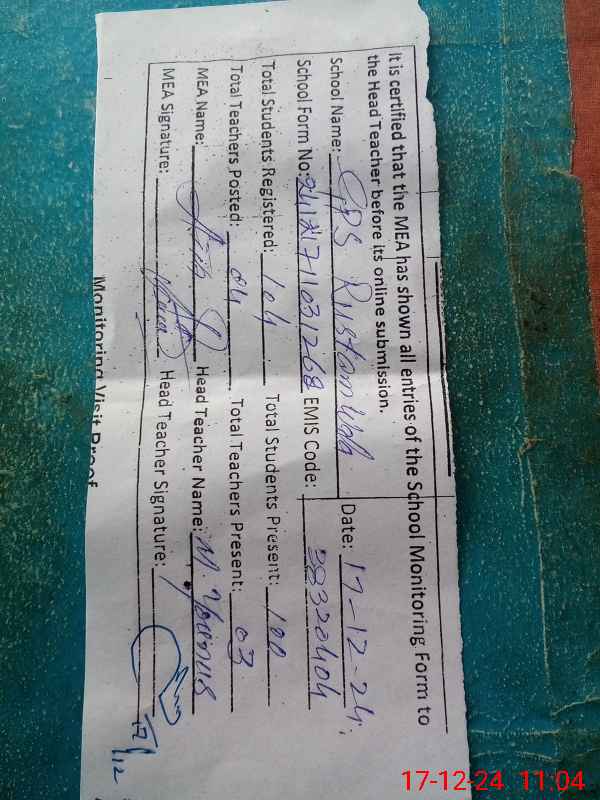 It is certified that the MEA has shown all entries of the School Monitoring Form to
the Head Teacher before its online submission.
School Name: GPS Rustam Wala Date: 17-12-24
School Form No: EMIS Code: 38320404
Total Students Registered: 104 Total Students Present: 100
Total Teachers Posted: 04 Total Teachers Present: 03
MEA Name: Head Teacher Name: M. Younus
MEA Signature: Head Teacher Signature:
17/12
Monitoring Visit Proof
17-12-24 11:04